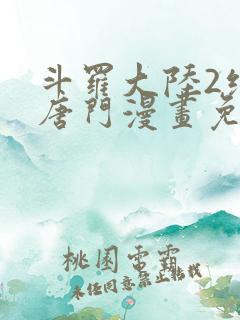 斗羅大陸2
唐門漫畫免
桃園電霸
未经同意禁止转载